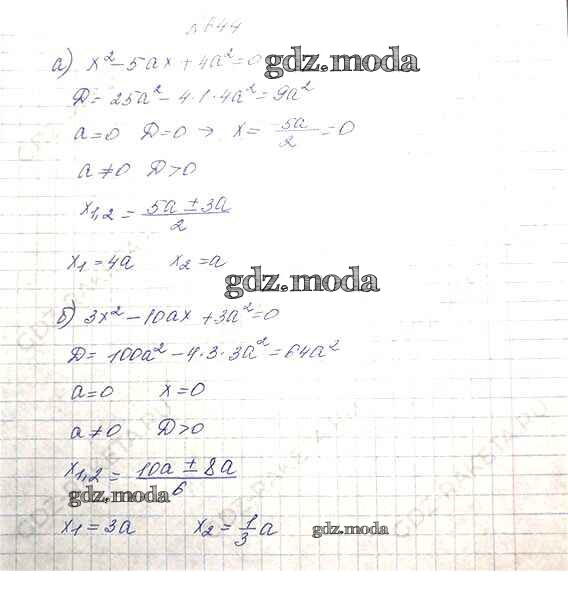 №644
а) x² - 5ax + 4a² = 0 gdz.moda
D = 25a² - 4·1·4a² = 9a²
a=0 D=0 → x = 5a/2 = 0
a≠0 D>0
x₁,₂ = (5a ± 3a)/2
x₁ = 4a x₂ = a
gdz.moda
б) 3x² - 10ax + 3a² = 0
D = 100a² - 4·3·3a² = 64a²
a=0 x=0
a≠0 D>0
x₁,₂ = (10a ± 8a)/6
gdz.moda
x₁ = 3a x₂ = 1/3 a gdz.moda